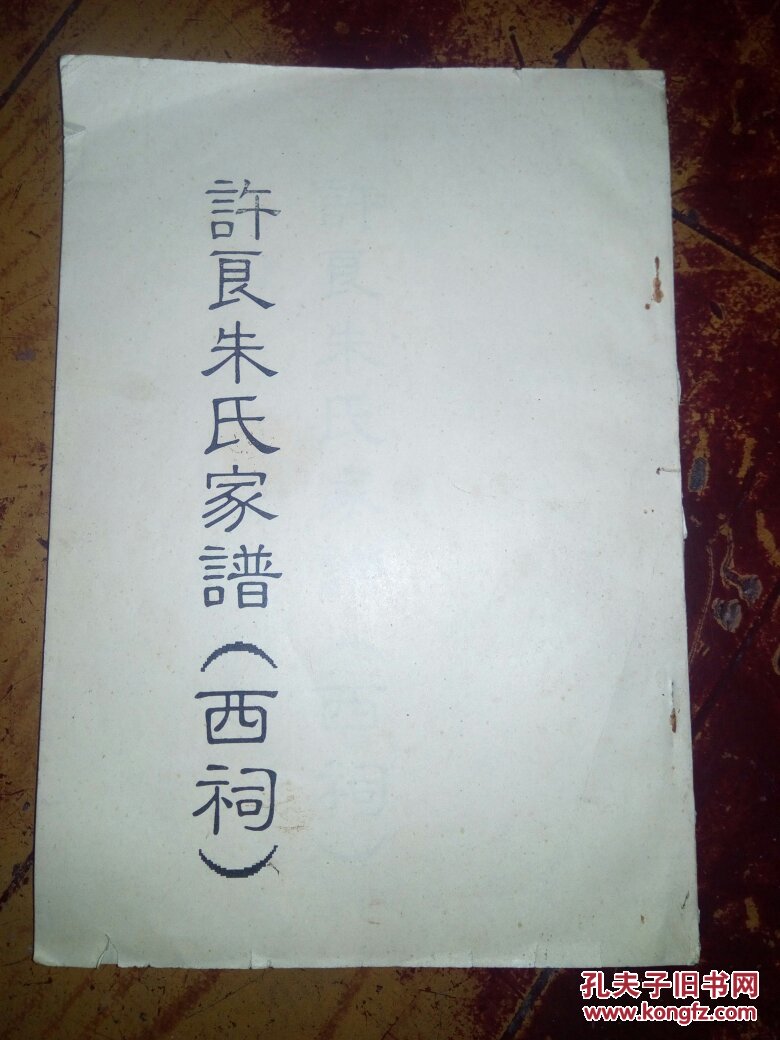 許良朱氏家譜（西祠）
孔夫子旧书网
www.kongfz.com